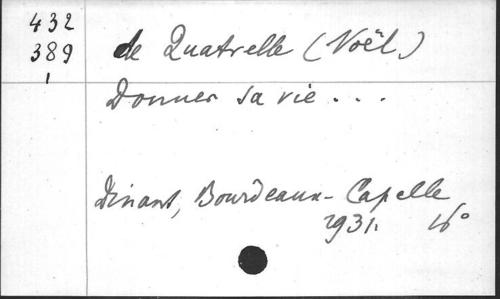 432
389
1
de Quatrelle (Noël)
Donner sa vie...
Dinant, Bourdeaux-Capelle
1931. 16°